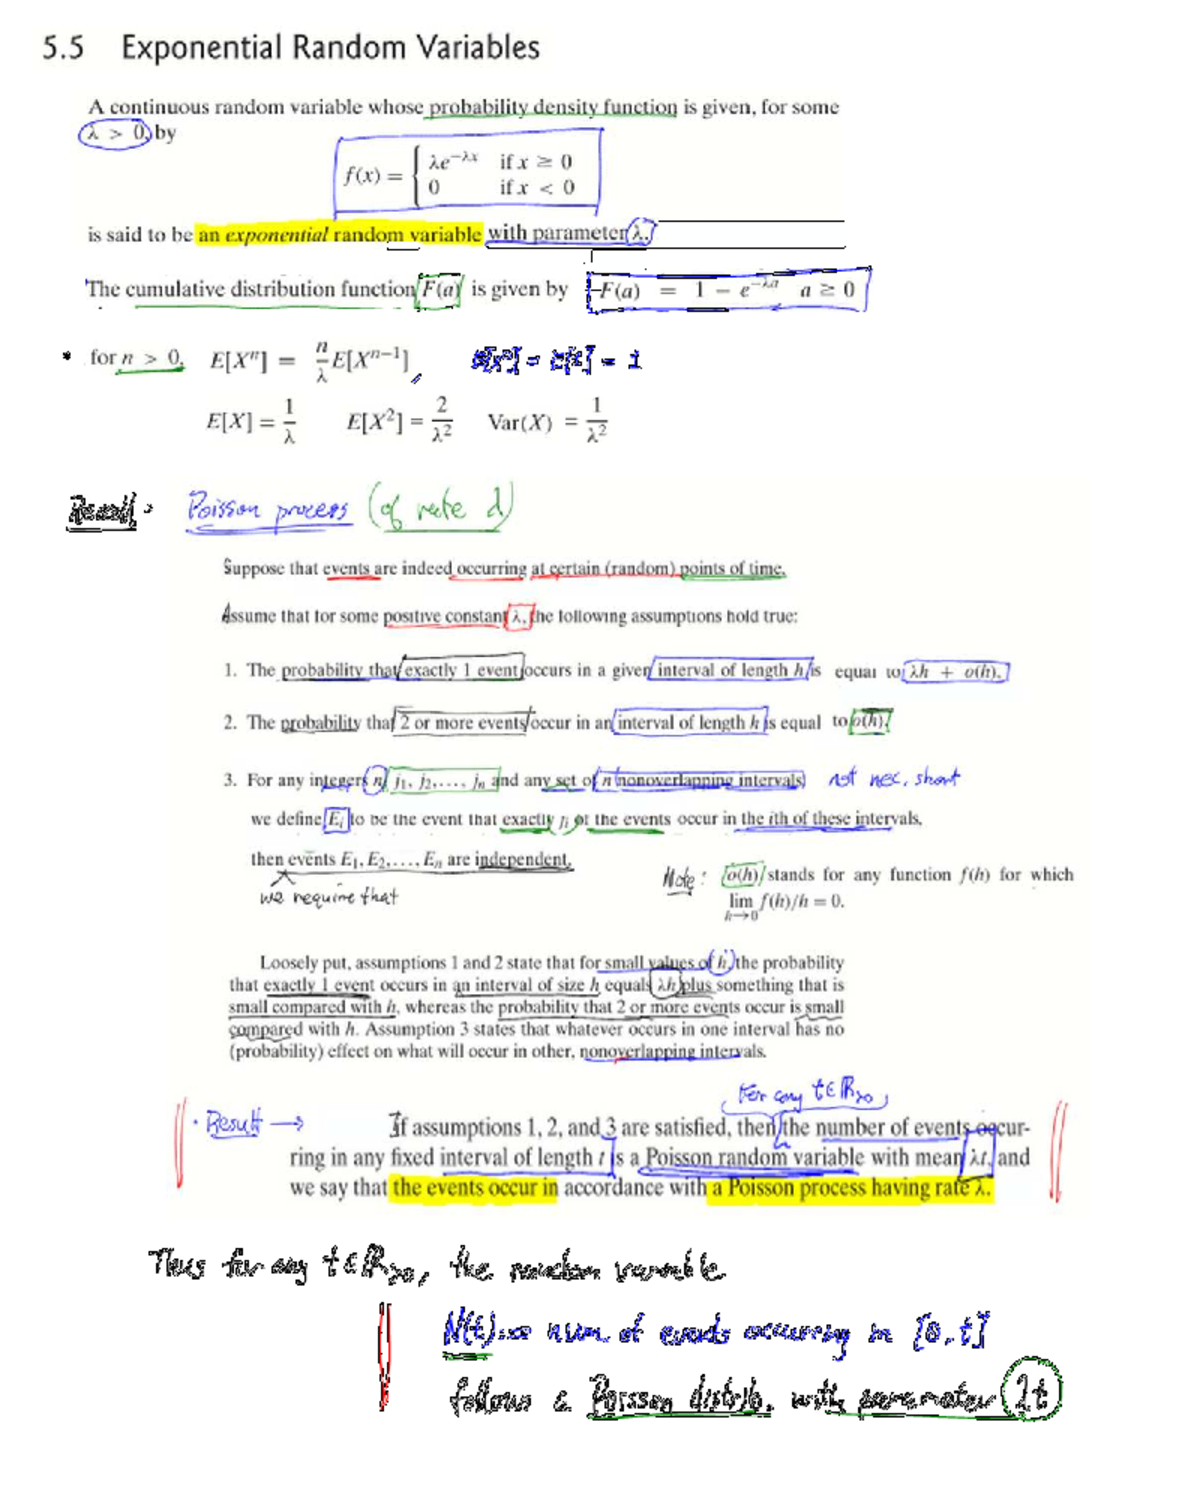 5.5 Exponential Random Variables
A continuous random variable whose probability density function is given, for some
λ > 0, by
f(x) = { λe^{-λx} if x ≥ 0
0 if x < 0
is said to be an exponential random variable with parameter λ.
The cumulative distribution function F(a) is given by F(a) = 1 − e^{-λa} a ≥ 0
• for n > 0, E[Xⁿ] = n/λ E[Xⁿ⁻¹], E[X⁰] = E[1] = 1
E[X] = 1/λ E[X²] = 2/λ² Var(X) = 1/λ²
Recall: Poisson process (of rate λ)
Suppose that events are indeed occurring at certain (random) points of time.
Assume that for some positive constant λ, the following assumptions hold true:
1. The probability that exactly 1 event occurs in a given interval of length h is equal to λh + o(h).
2. The probability that 2 or more events occur in an interval of length h is equal to o(h).
3. For any integers n, j₁, j₂,..., jₙ and any set of n nonoverlapping intervals, not nec. short
we define Eᵢ to be the event that exactly jᵢ of the events occur in the ith of these intervals,
then events E₁, E₂,..., Eₙ are independent.
we require that
Note: o(h) stands for any function f(h) for which
lim h→0 f(h)/h = 0.
Loosely put, assumptions 1 and 2 state that for small values of h, the probability
that exactly 1 event occurs in an interval of size h equals λh plus something that is
small compared with h, whereas the probability that 2 or more events occur is small
compared with h. Assumption 3 states that whatever occurs in one interval has no
(probability) effect on what will occur in other, nonoverlapping intervals.
For any t∈ℝ>0,
• Result → If assumptions 1, 2, and 3 are satisfied, then the number of events occur-
ring in any fixed interval of length t is a Poisson random variable with mean λt, and
we say that the events occur in accordance with a Poisson process having rate λ.
Thus for any t∈ℝ>0, the random variable
N(t) := num. of events occurring in [0,t]
follows a Poisson distrib. with parameter λt